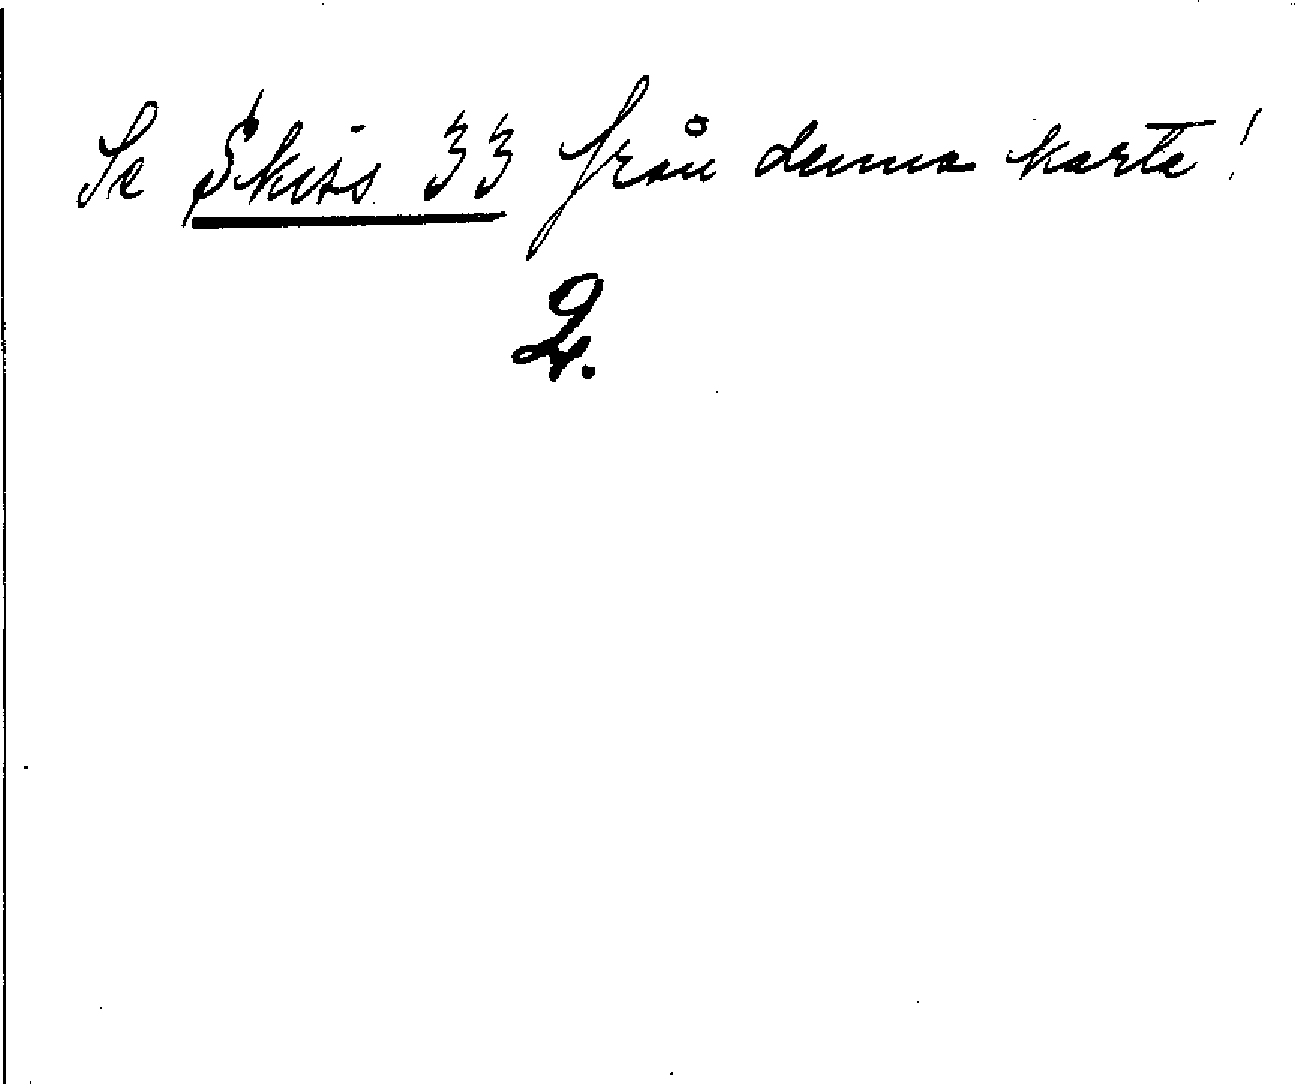 Se Skiss 33 från denna karta!
2.